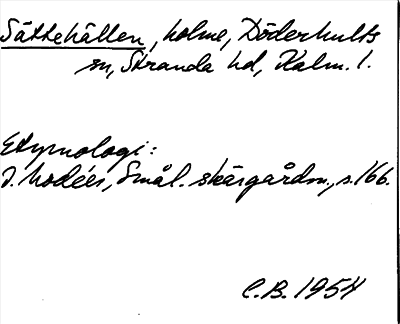 Sättehällen, holme, Döderhults
sn, Stranda hd, Kalm. l.
Etymologi:
J. Modéer, Smål. skärgårdsn., s. 166.
C.B. 1954